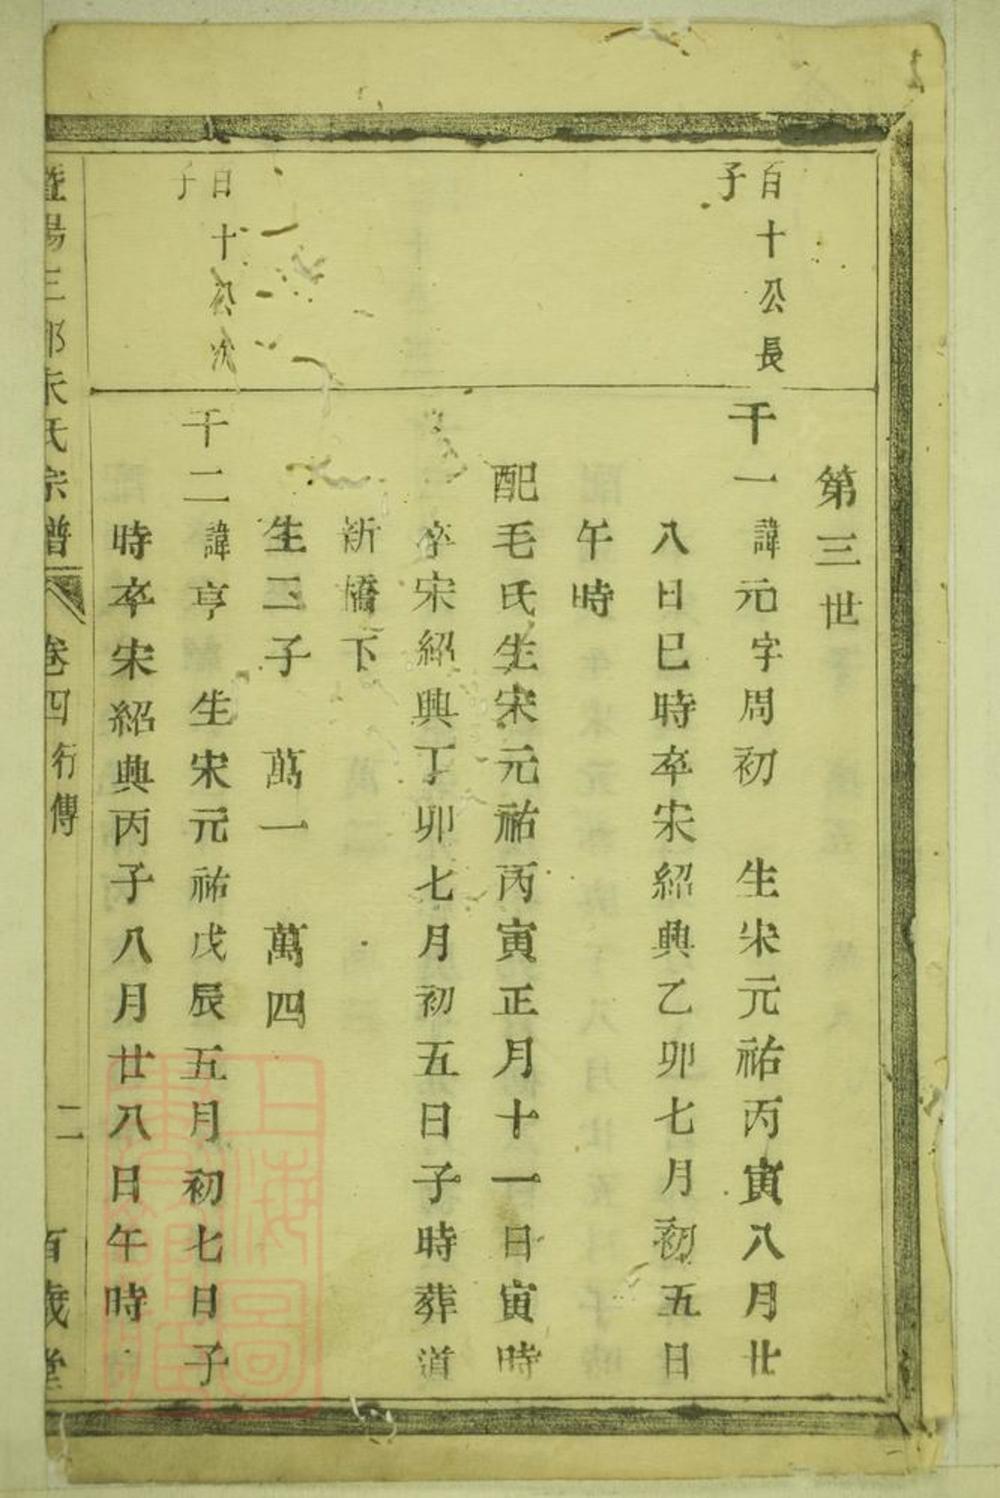 第三世
百十公長
子
千一諱元字周初 生宋元祐丙寅八月廿
八日巳時卒宋紹興乙卯七月初五日
午時
配毛氏生宋元祐丙寅正月十一日寅時
卒宋紹興丁卯七月初五日子時葬道
新橋下
生三子 萬一 萬四
百十公次
子
千二諱亨 生宋元祐戊辰五月初七日子
時卒宋紹興丙子八月廿八日午時
暨陽三郎朱氏宗譜 卷四 行傳 二 百歲堂
上海圖
書館藏